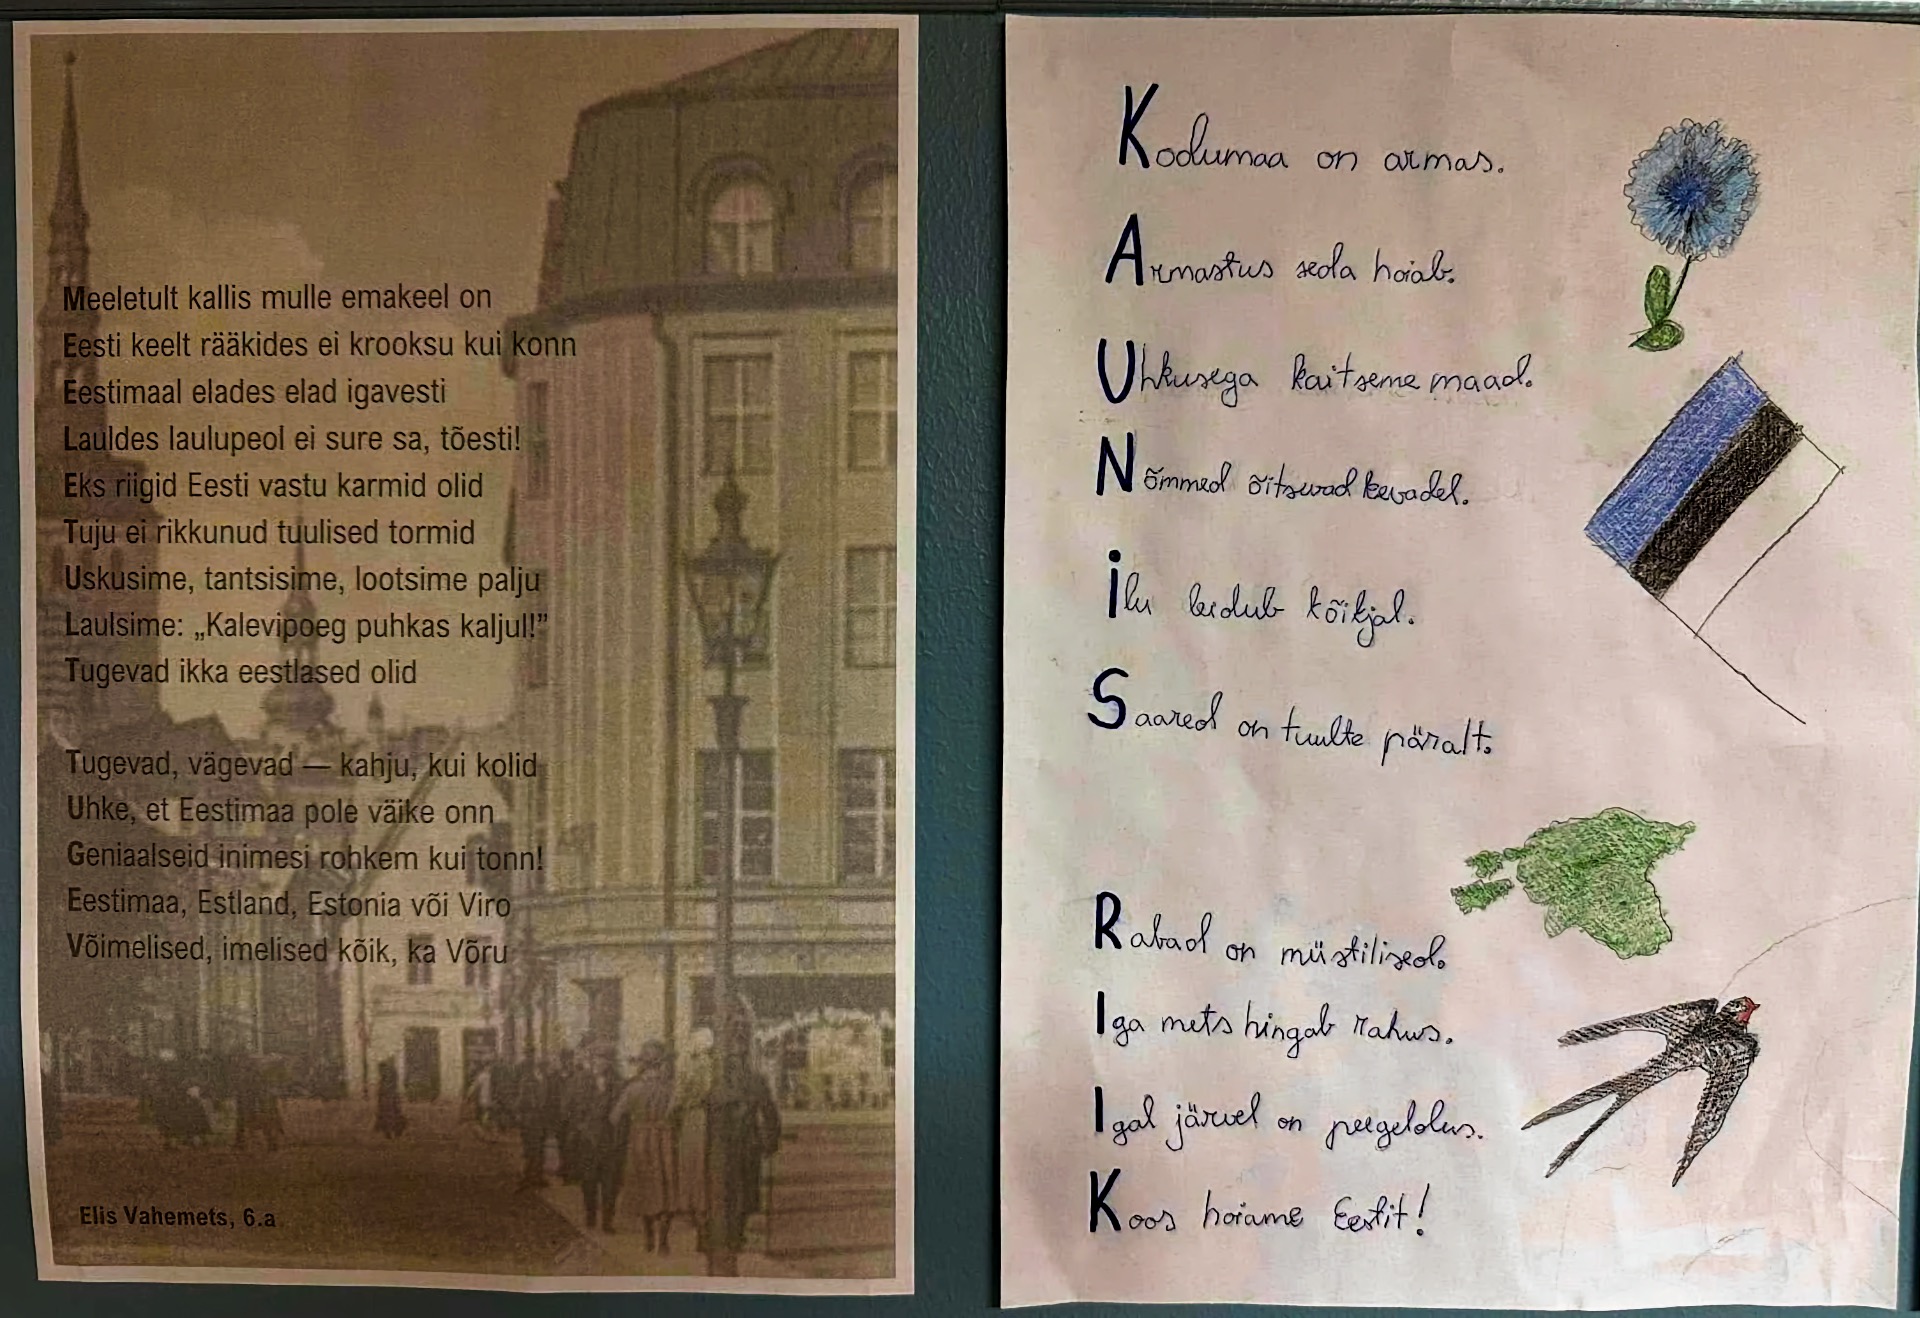 Meeletult kallis mulle emakeel on
Eesti keelt rääkides ei krooksu kui konn
Eestimaal elades elad igavesti
Lauldes laulupeol ei sure sa, tõesti!
Eks riigid Eesti vastu karmid olid
Tuju ei rikkunud tuulised tormid
Uskusime, tantsisime, lootsime palju
Laulsime: „Kalevipoeg puhkas kaljul!”
Tugevad ikka eestlased olid
Tugevad, vägevad — kahju, kui kolid
Uhke, et Eestimaa pole väike onn
Geniaalseid inimesi rohkem kui tonn!
Eestimaa, Estland, Estonia või Viro
Võimelised, imelised kõik, ka Võru
Elis Vahemets, 6.a
Kodumaa on armas.
Armastus seda hoiab.
Uhkusega kaitseme maad.
Nõmmed õitsevad kevadel.
Ilu leidub kõikjal.
Saared on tuulte päralt.
Rabad on müstilised.
Iga mets hingab rahus.
Igal järvel on peegeldus.
Koos hoiame Eestit!